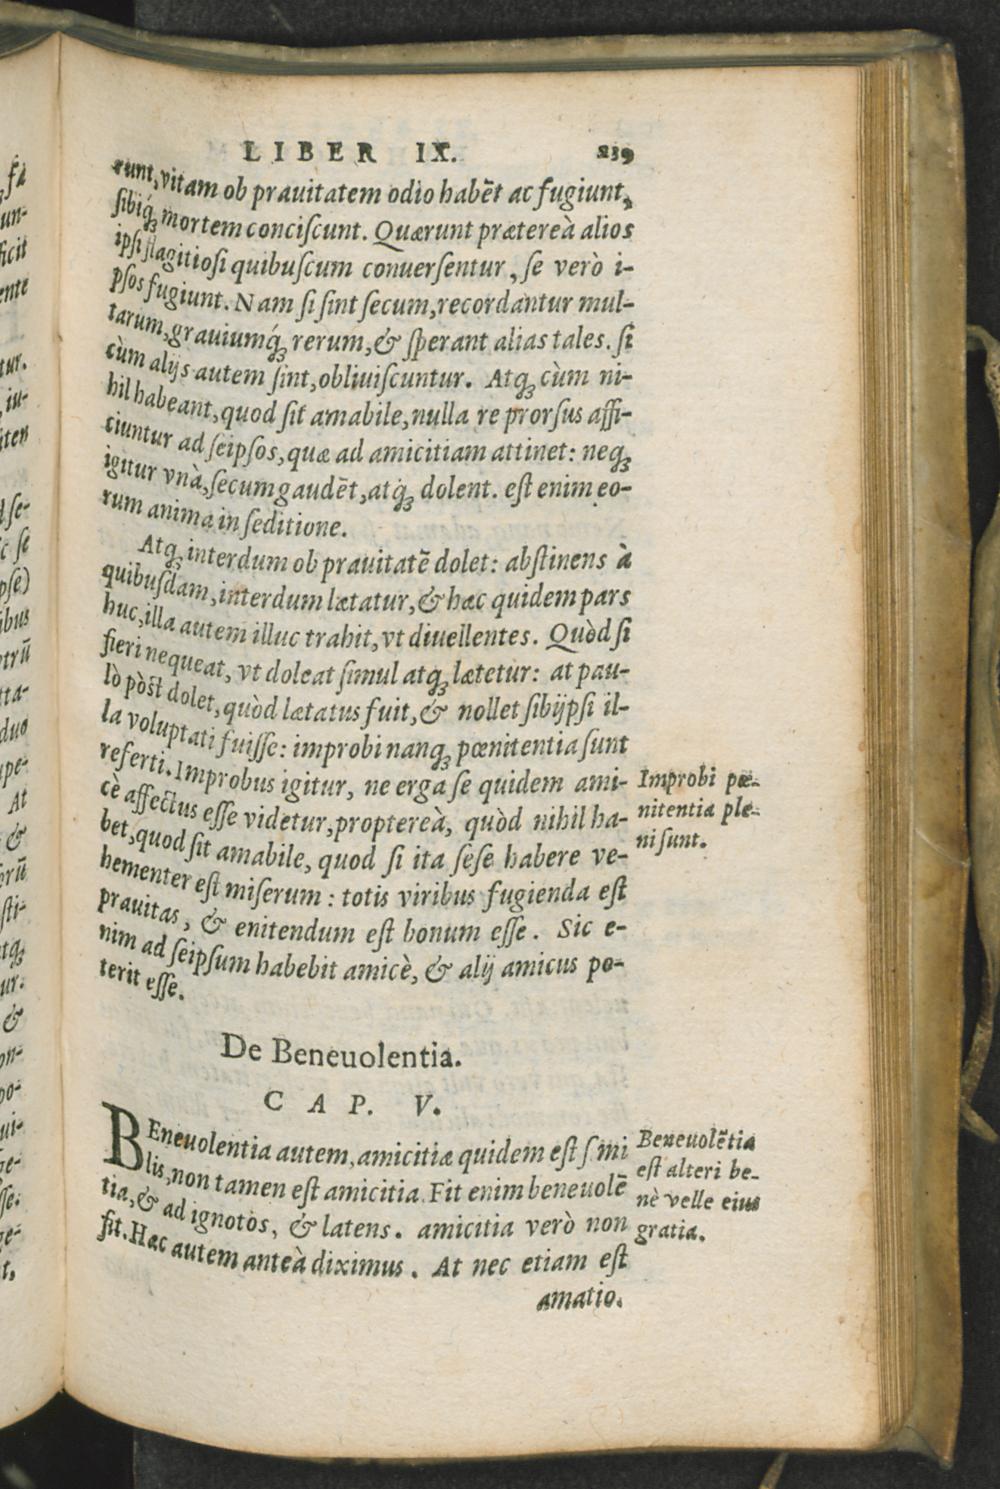 LIBER IX. 239
runt, vitam ob prauitatem odio habēt ac fugiunt,
sibiq́; mortem consciscunt. Quærunt prætereà alios
ipsi flagitiosi quibuscum conuersentur, se verò i-
psos fugiunt. Nam si sint secum, recordantur mul-
tarum, grauiumq́; rerum, & sperant alias tales. si
cùm alijs autem sint, obliuiscuntur. Atq; cùm ni-
hil habeant, quod sit amabile, nulla re prorsus affi-
ciuntur ad seipsos, quæ ad amicitiam attinet: neq;
igitur vnà, secum gaudēt, atq́; dolent. est enim eo-
rum anima in seditione.
Atq; interdum ob prauitatē dolet: abstinens à
quibusdam, interdum lætatur, & hæc quidem pars
huc, illa autem illuc trahit, vt diuellentes. Quòd si
fieri nequeat, vt doleat simul atq; lætetur: at pau-
lò pòst dolet, quòd lætatus fuit, & nollet sibijpsi il-
la voluptati fuisse: improbi nanq; pœnitentia sunt
referti. Improbus igitur, ne erga se quidem ami-
cè affectus esse videtur, propterea, quòd nihil ha-
bet, quod sit amabile, quod si ita sese habere ve-
hementer est miserum: totis viribus fugienda est
prauitas, & enitendum est bonum esse. Sic e-
nim ad seipsum habebit amicè, & alij amicus po-
terit esse.
Improbi pœ-
nitentia ple-
ni sunt.
De Beneuolentia.
CAP. V.
BEneuolentia autem, amicitiæ quidem est simi
lis, non tamen est amicitia. Fit enim beneuolē
tia, & ad ignotos, & latens. amicitia verò non
sit. Hæc autem anteà diximus. At nec etiam est
amatio.
Beneuolētia
est alteri be-
nè velle eius
gratia.